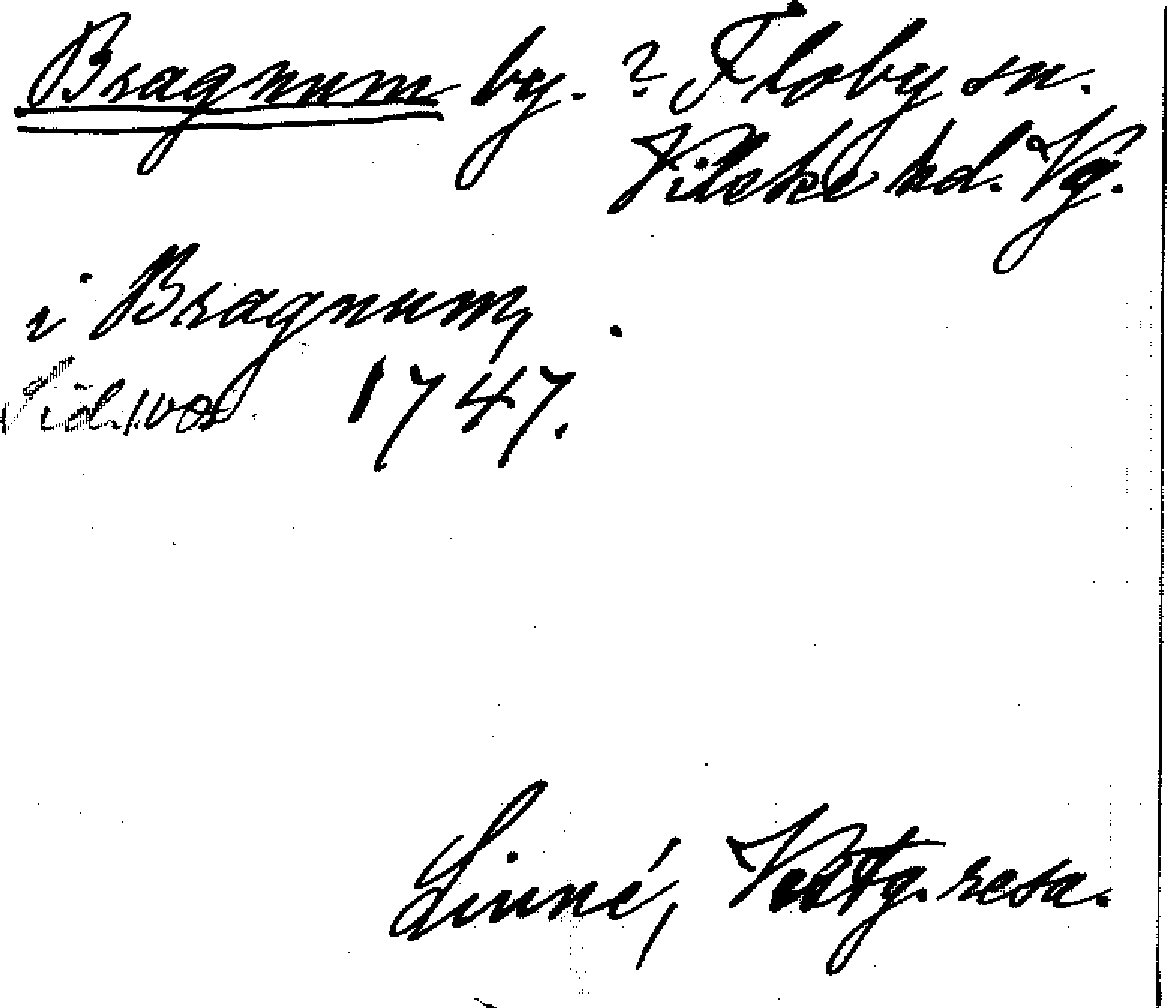 Bragnum by. ? Floby sn.
Vilske hd. Vg.
i Bragnum,
1747.
Linné, Västg. resa.